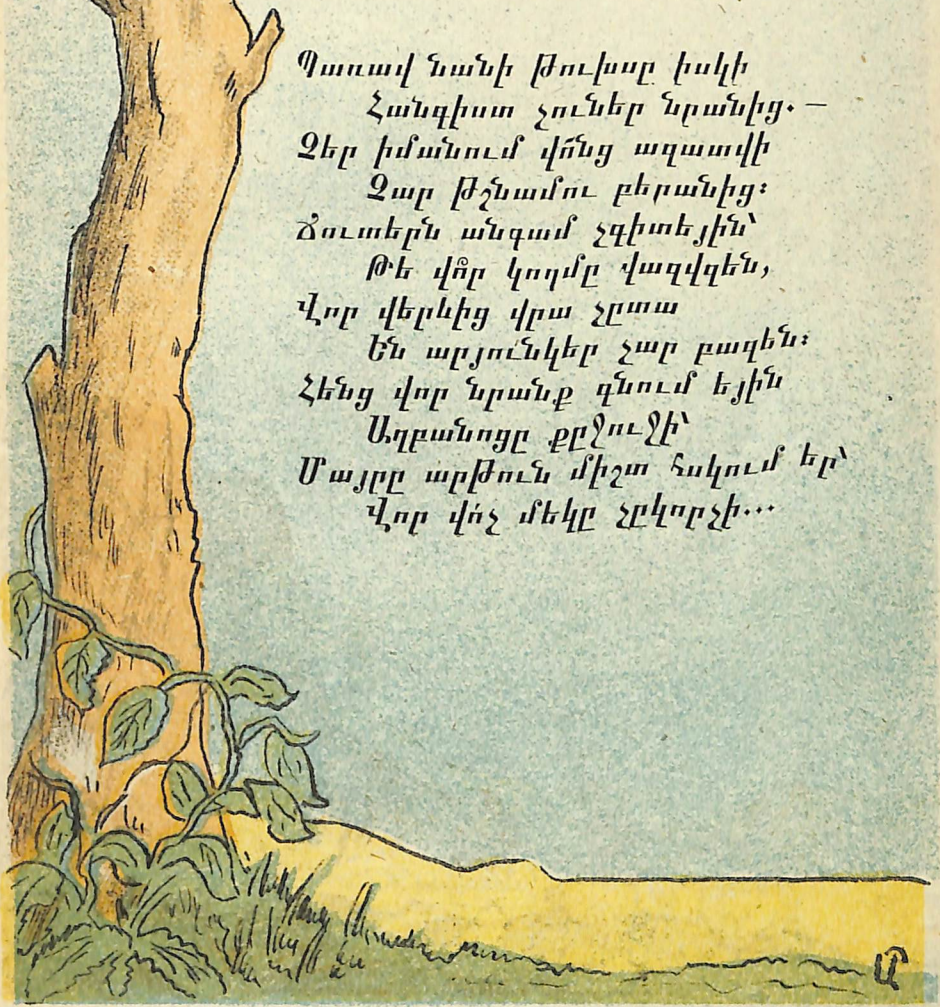 Պառավ նանի թուխսը իսկի
Հանգիստ չուներ նրանից. —
Չեր իմանում վո՞նց ազատվի
Չար թշնամու բերանից։
Ճուտերն անգամ չգիտեյին՝
Թե վո՞ր կողմը վազվզեն,
Վոր վերևից վրա չըտա
Են արյունկեր չար բազեն։
Հենց վոր նրանք գնում եյին
Աղբանոցը քըջուջի՝
Մայրը արթուն միշտ հսկում եր՝
Վոր վո՛չ մեկը չըկորչի...